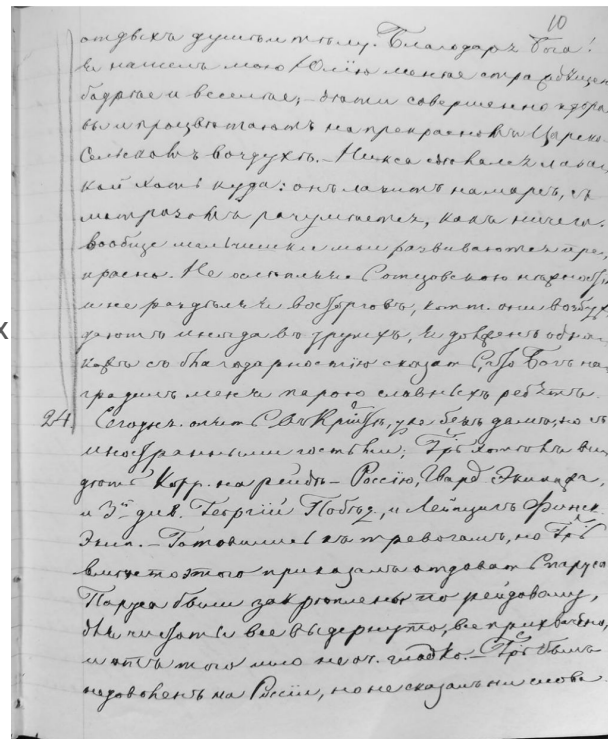 10
отдыхъ душѣ и тѣлу. Благодаря Бога!
Я нашелъ мою Юлію менѣе
бодрѣе и веселѣе; – дѣти совершенно здоро
вы и процвѣтаютъ на прекрасномъ Царско
Сельскомъ воздухѣ. – Никса
кой хоть куда: онъ лазитъ на марсъ, съ
матрозомъ разумѣется, какъ ничего.
вообще мальчишки мои развиваются пре,
красно. Не ослѣпленъ отцовскою нѣжностью
и не раздѣляя восторговъ, кот. они возбуж
даютъ иногда въ другихъ, я долженъ одна
кожъ съ благодарностію сказать, что Богъ на
градилъ меня парою славныхъ ребятъ.
х
24. Сегодня опять С въ Кр, уже безъ дамъ, но съ
иностранными гостьми; Гръ хотѣлъ ви
дѣть Кор. на рейдѣ – Россію, Гвард. Экипажа,
и 3й див. Георгій Побѣд., и Лейпцигъ Финск.
Экип. – Готовились къ тревогамъ, но Гръ
вмѣсто этого приказалъ отдавать паруса
Паруса были закрѣплены по рейдовому,
бык все выдернуто, все прихвачено,
и отъ того шло не оч. гладко. – Гръ былъ
недоволенъ на Россіи, но не сказалъ ни слова